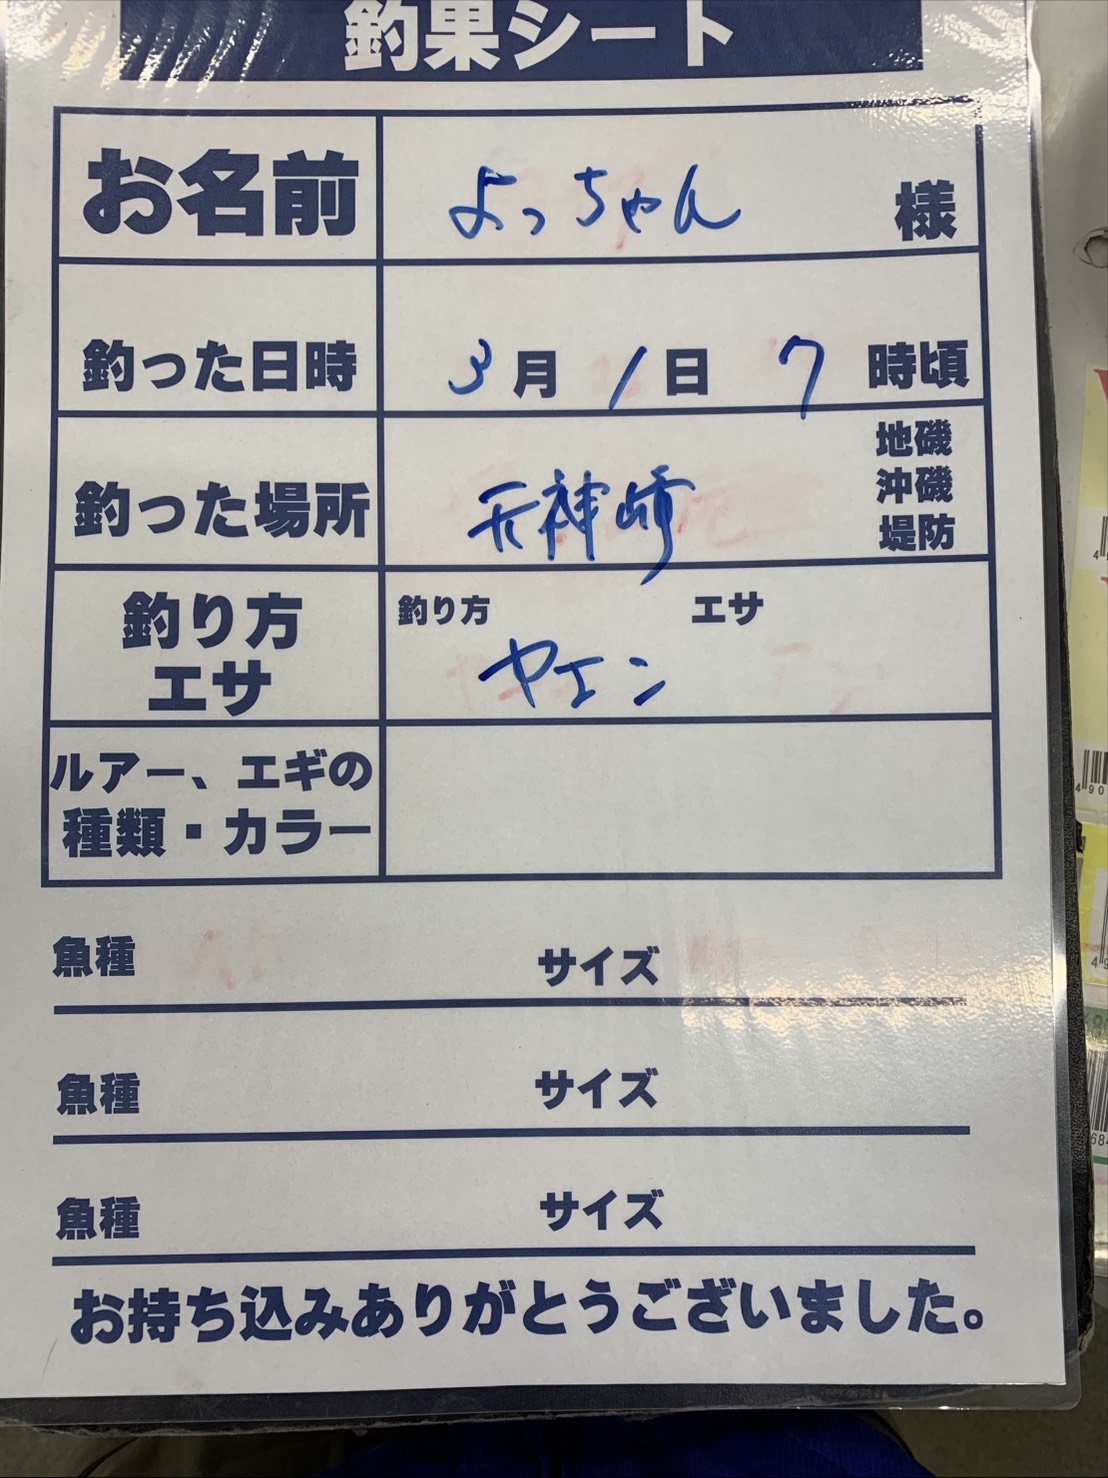 釣果シート
お名前 よっちゃん 様
釣った日時 3月1日 7時頃
釣った場所 天神崎 地磯 沖磯 堤防
釣り方 エサ
釣り方 エサ
ヤエン
ルアー、エギの
種類・カラー
魚種 サイズ
魚種 サイズ
魚種 サイズ
お持ち込みありがとうございました。